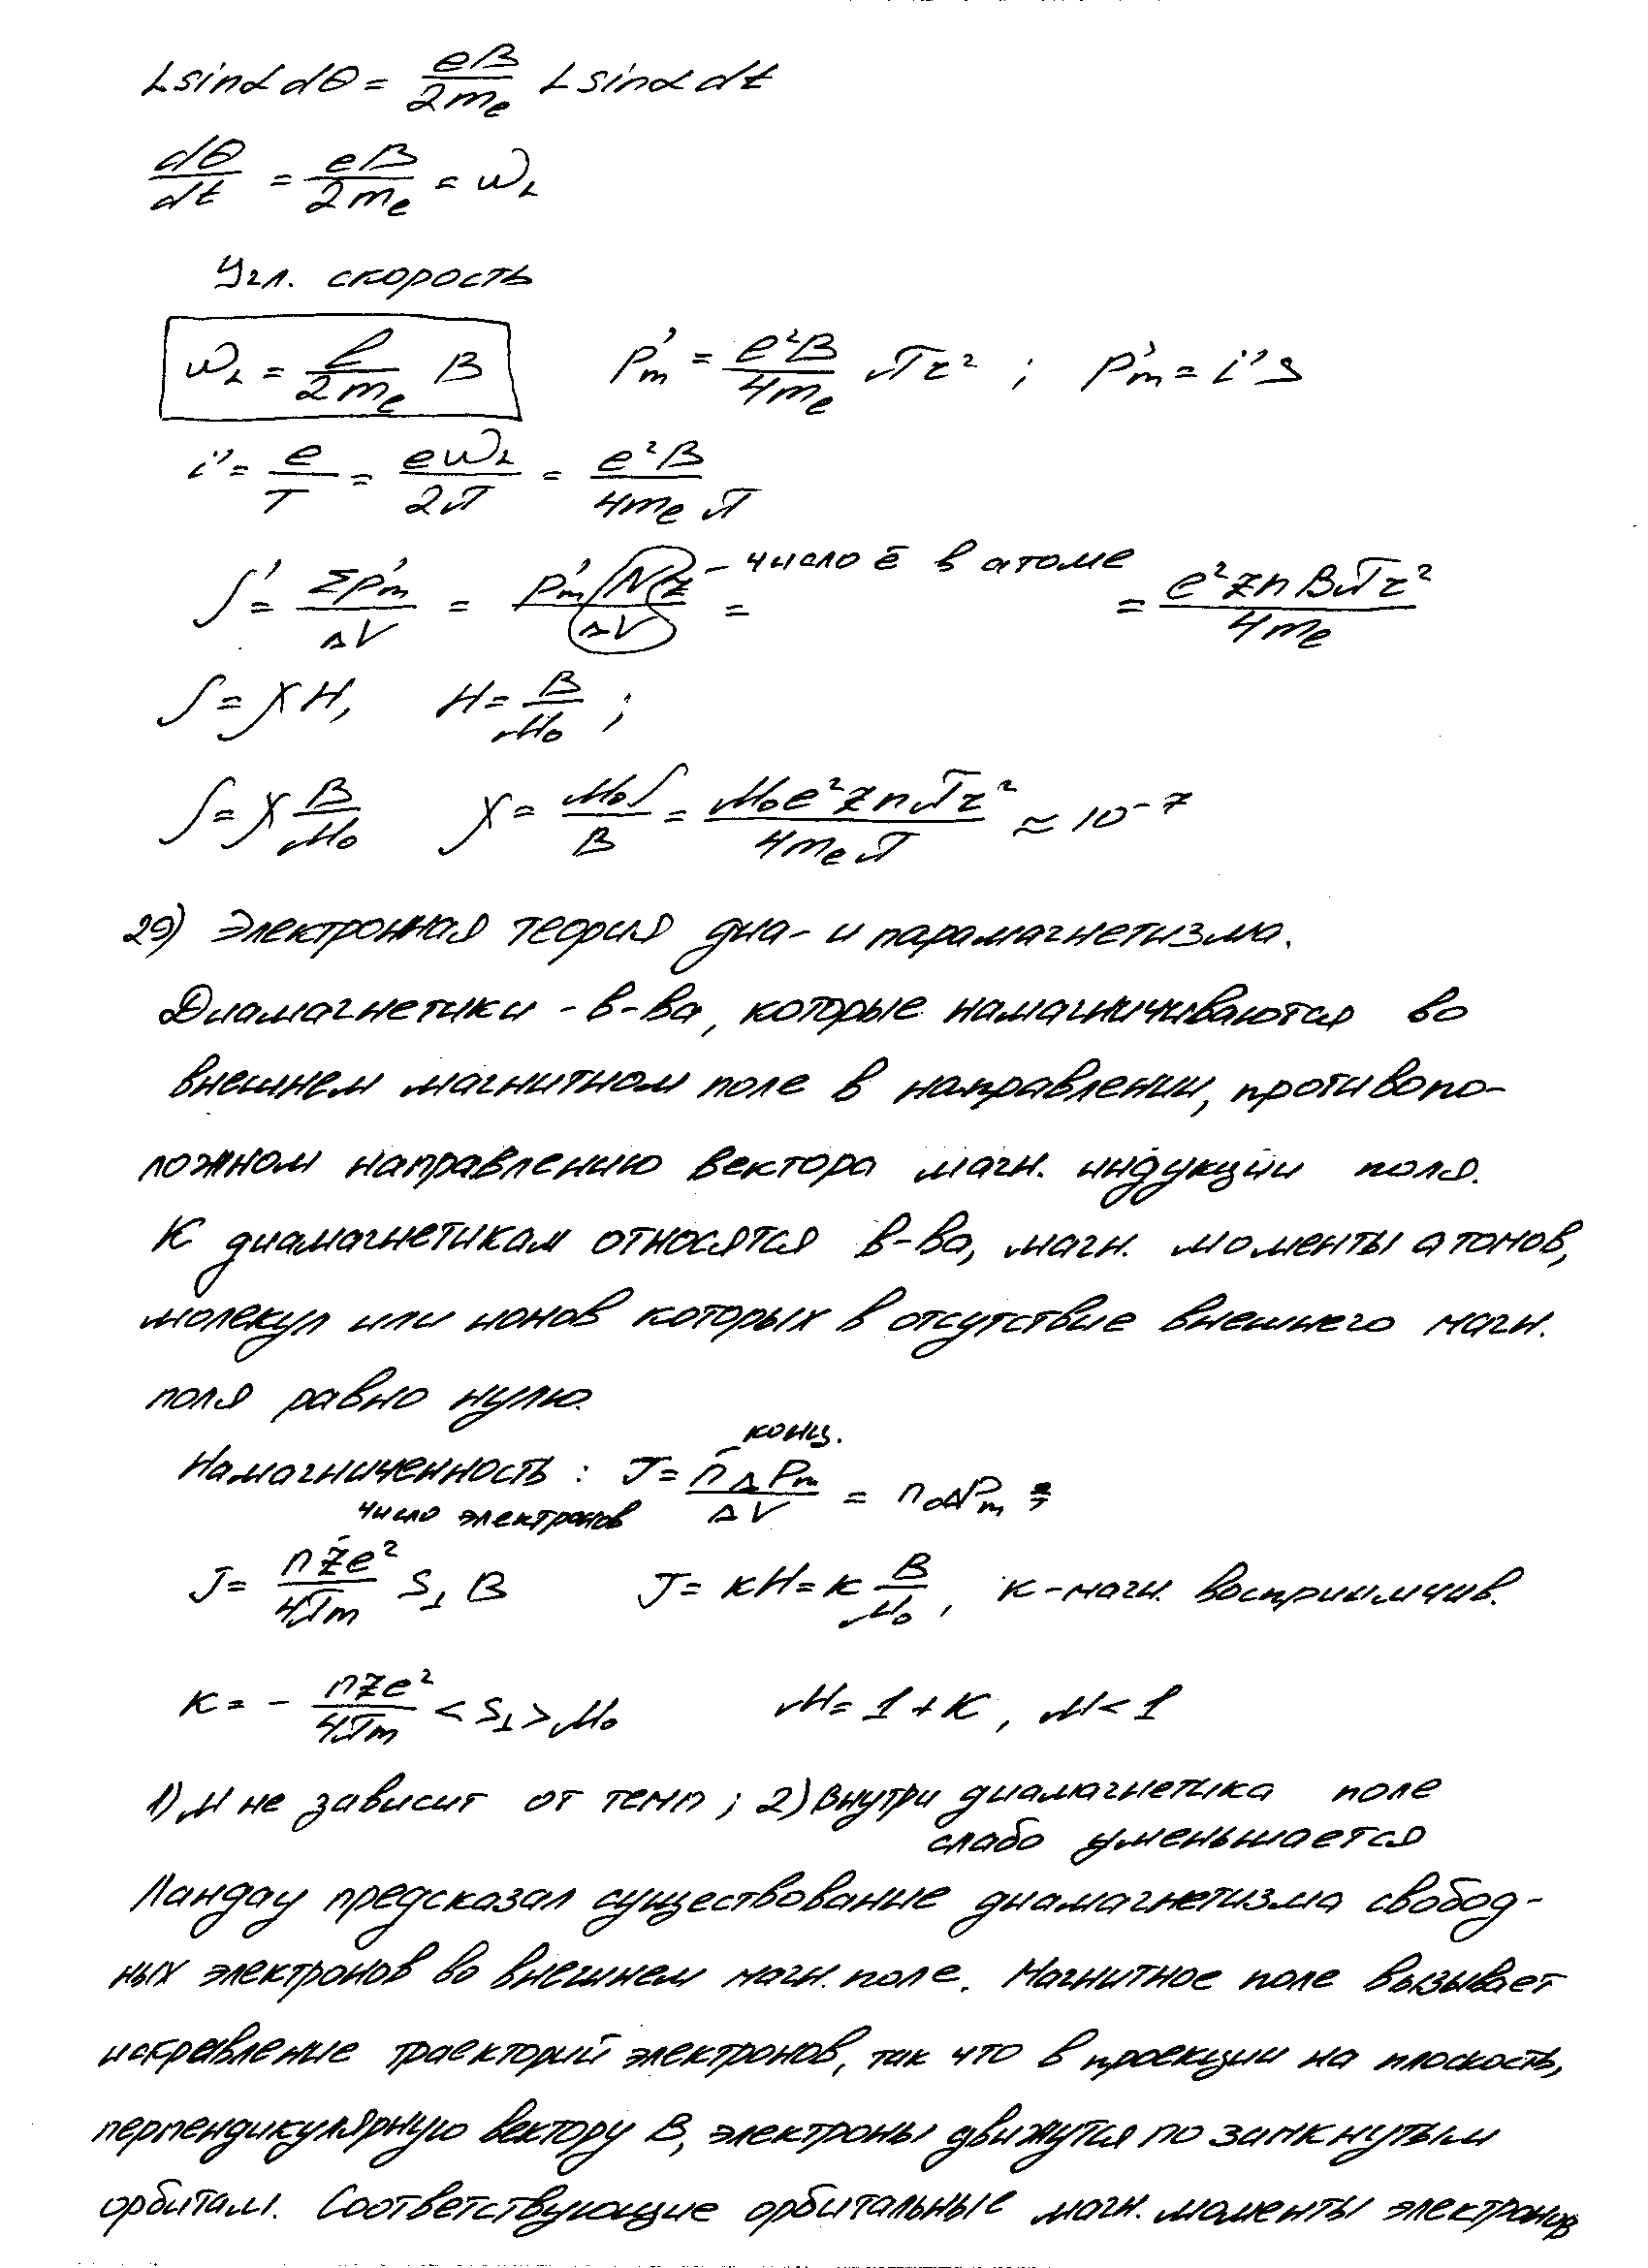 L sinα dθ = eB/2mₑ L sinα dt
dθ/dt = eB/2mₑ = ω_L
Угл. скорость
ω_L = e/2mₑ B    p'ₘ = e²B/4mₑ πr² ; p'ₘ = i'S
i' = e/T = eω_L/2π = e²B/4mₑπ
J' = Σp'ₘ/ΔV = p'ₘNz/ΔV - число ē в атоме = = e²znBπr²/4mₑ
J = χH, H = B/μ₀ ;
J = χ B/μ₀    χ = μ₀J/B = μ₀e²znπr²/4mₑπ ≈ 10⁻⁷
29) Электронная теория диа- и парамагнетизма.
Диамагнетики - в-ва, которые намагничиваются во
внешнем магнитном поле в направлении, противопо-
ложном направлению вектора магн. индукции поля.
К диамагнетикам относятся в-ва, магн. моменты атомов,
молекул или ионов которых в отсутствие внешнего магн.
поля равно нулю.
конц.
Намагниченность : J = nΔPₘ/ΔV = n₀ΔPₘ ;
число электронов
J = nZe²/4πm S⊥ B    J = κH = κ B/μ₀, κ - магн. восприимчив.
κ = - nZe²/4πm <S⊥> μ₀    μ = 1 + κ, μ < 1
1) μ не зависит от темп ; 2) внутри диамагнетика поле
слабо уменьшается
Ландау предсказал существование диамагнетизма свобод-
ных электронов во внешнем магн. поле. Магнитное поле вызывает
искревление траекторий электронов, так что в проекции на плоскость,
перпендикулярную вектору B, электроны движутся по замкнутым
орбитам. Соответствующие орбитальные магн. моменты электронов